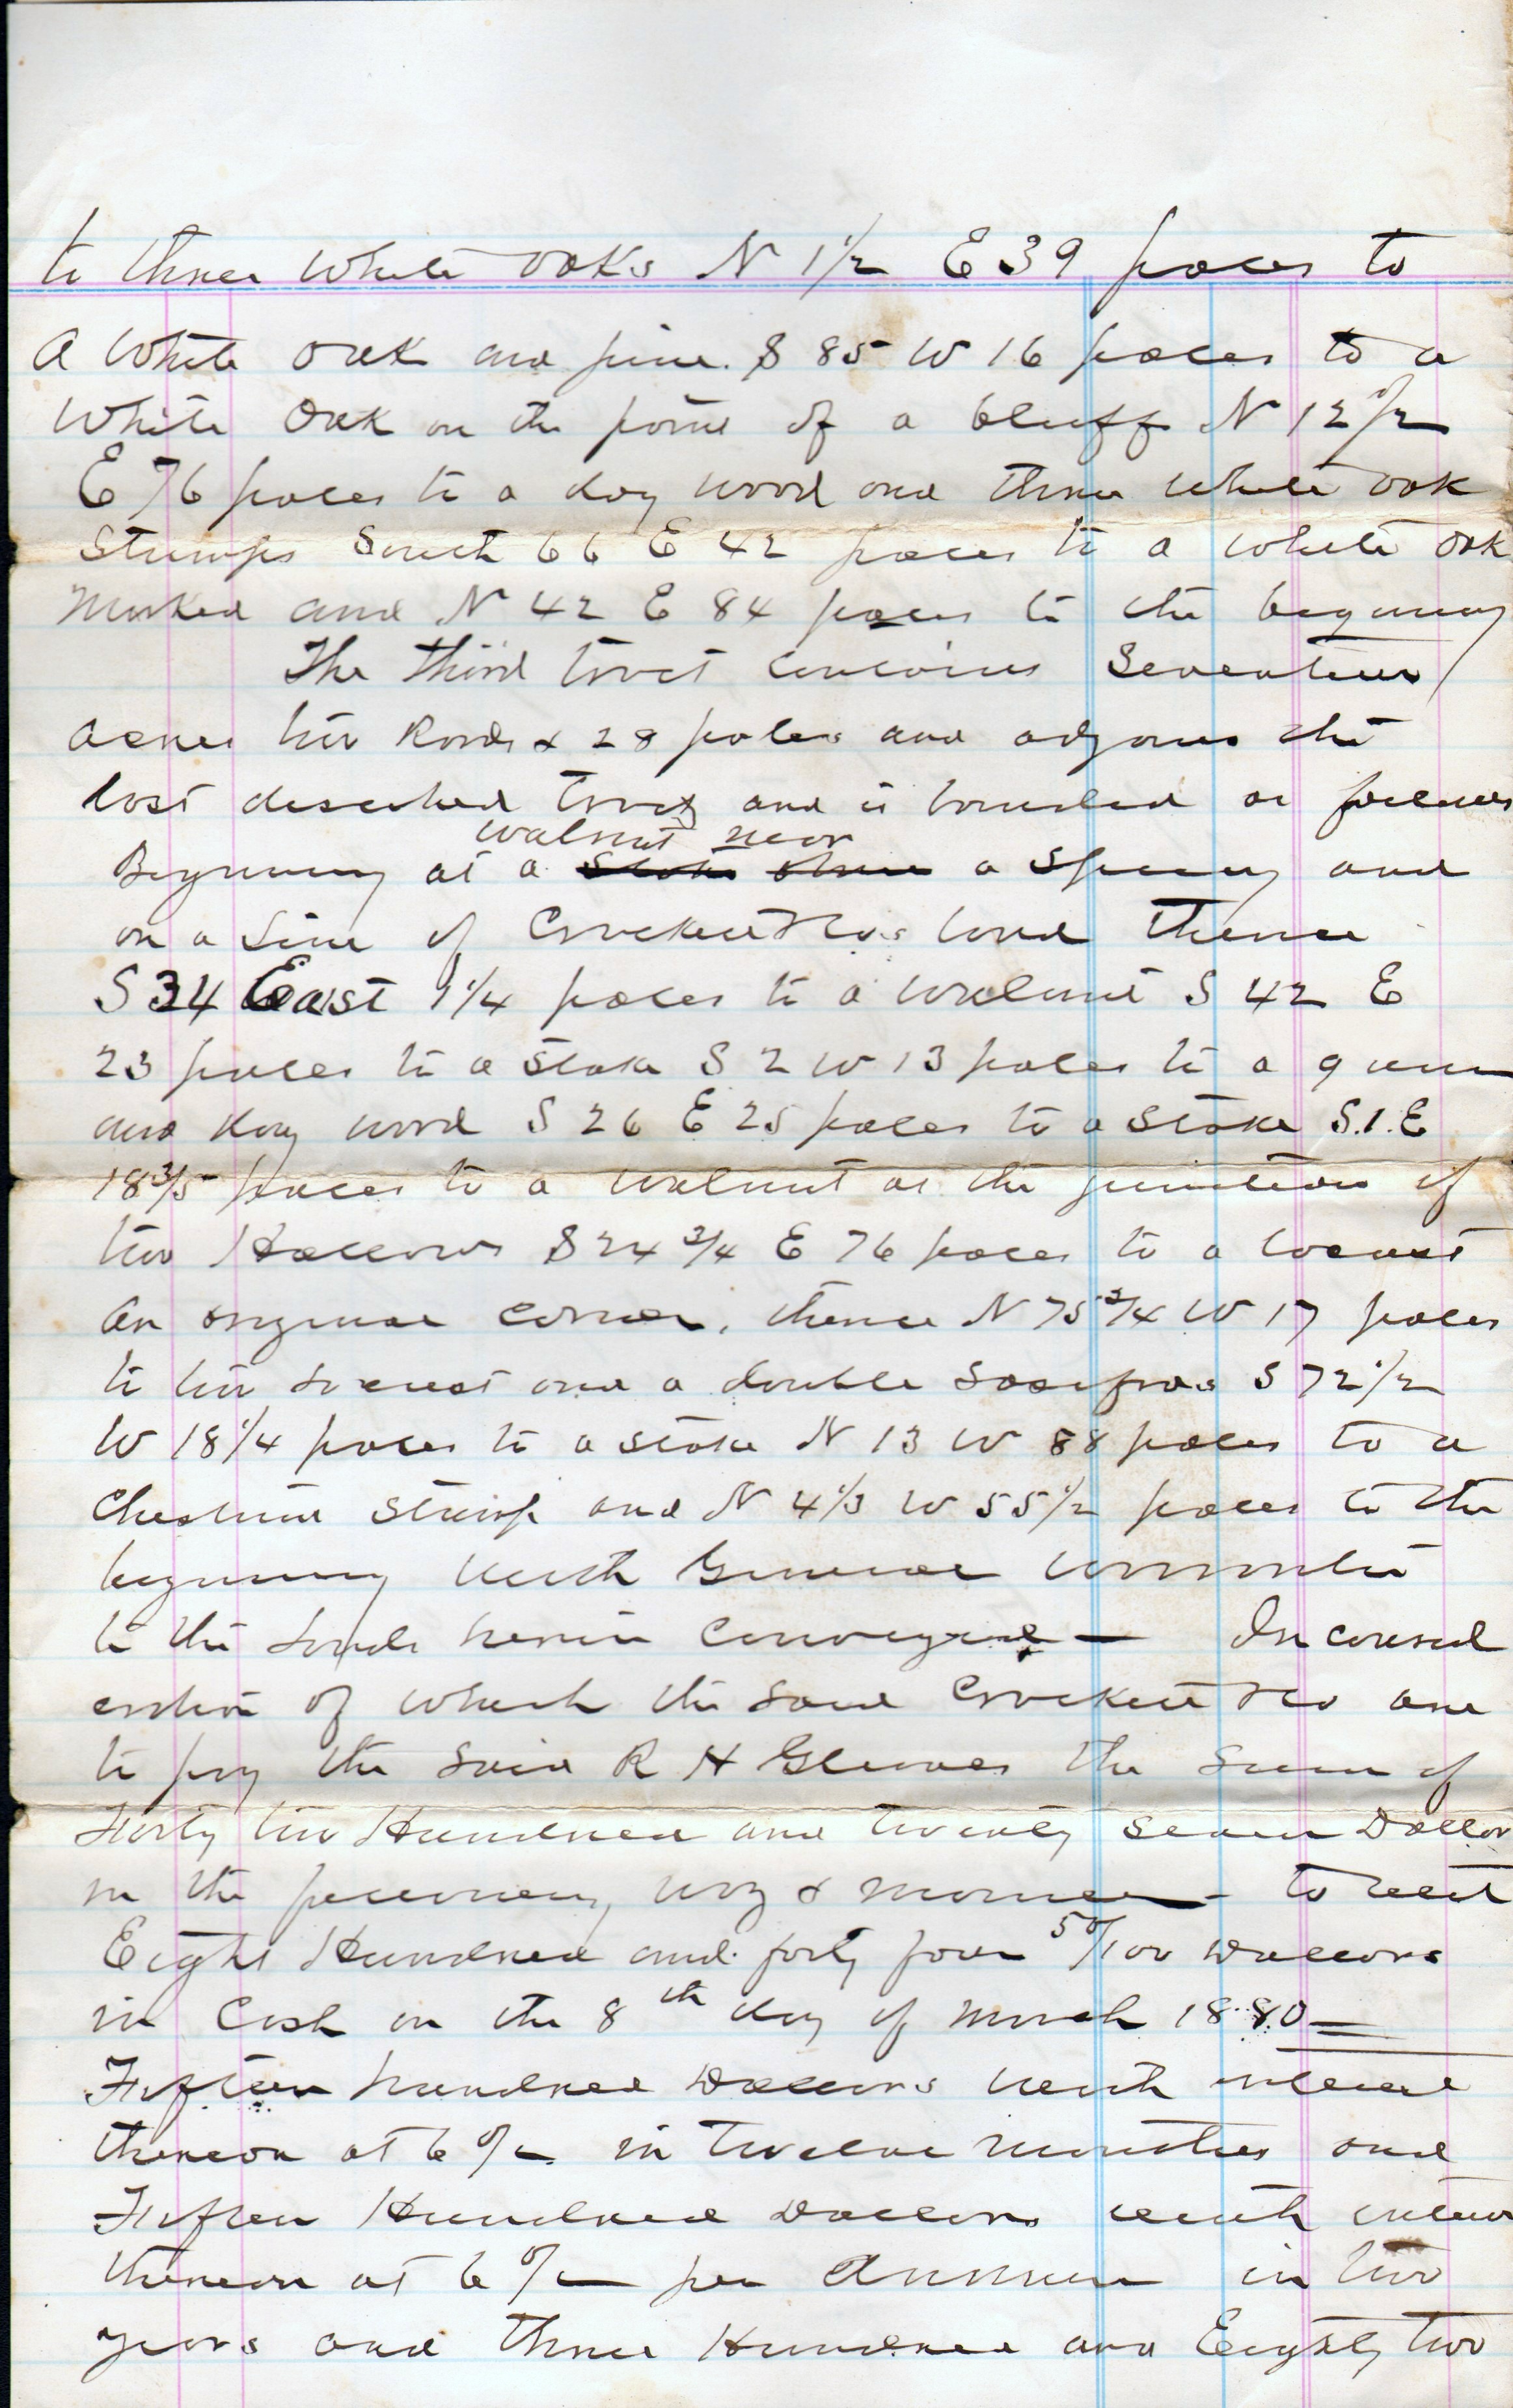 to three white oaks N 1 1/2 E 39 poles to
A White oak and pine. S 85 W 16 poles to a
White Oak on the point of a bluff N 12 1/2
E 76 poles to a dog wood and three white oak
Stumps South 66 E 42 poles to a white oak
Marked and N 42 E 84 poles to the beginning
The third tract contains Seventeen
acres two Roods & 28 poles and adjoins the
last described tract and is bounded as follows
Beginning at a walnut near a Spring and
on a line of Crockett & Co.s land thence
S 34 East 9 1/4 poles to a walnut S 42 E
23 poles to a Stake S 2 W 13 poles to a gum
and dog wood S 26 E 25 poles to a Stake S.1.E
18 3/5 poles to a walnut at the junction of
two Hollows S 24 3/4 E 76 poles to a locust
an original corner, thence N 75 3/4 W 17 poles
to two Locust and a double Sassafras S 72 1/2
W 18 1/4 poles to a Stake N 13 W 88 poles to a
Chestnut Stump and N 4 1/3 W 55 1/2 poles to the
beginning with General warrantee
to the Lands herein Conveyed — In consid
eration of which the said Crockett & Co are
to pay the said R H Gleaves the Sum of
Forty two Hundred and twenty seven Dollars
in the following way & manner - to wit
Eight Hundred and forty four 50/100 Dollars
in Cash on the 8th day of March 1880
Fifteen hundred Dollars with interest
thereon at 6 % in twelve months and
Fifteen Hundred Dollars with interest
thereon at 6 % per Annum in two
years and three Hundred and Eighty two